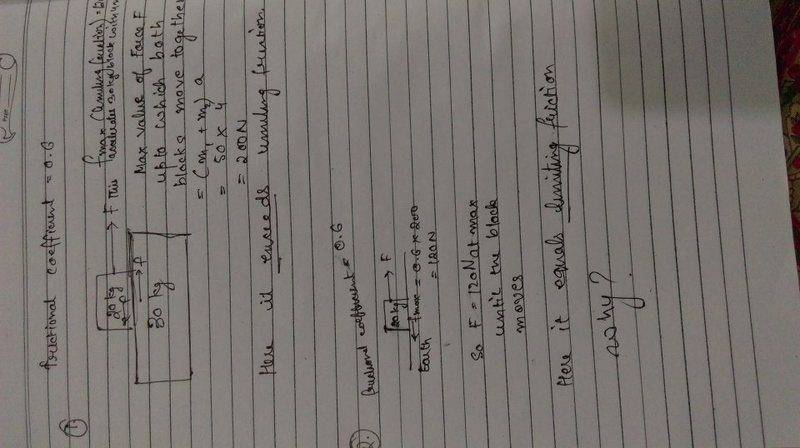 ①
frictional coefficient = 0.6
20 kg
→ F
f
30 kg
→ f
This fmax (limiting friction) =
accelerates 30 kg block with
Max value of Force F
upto which both
blocks move together
= (m1 + m2) a
= 50 x 4
= 200N
Here it exceeds limiting friction.
2.
frictional coefficient = 0.6
20 kg
→ F
← fmax = 0.6 x 200
= 120N
Earth
So F = 120N at max
until the block
moves
Here it equals limiting friction
Why?